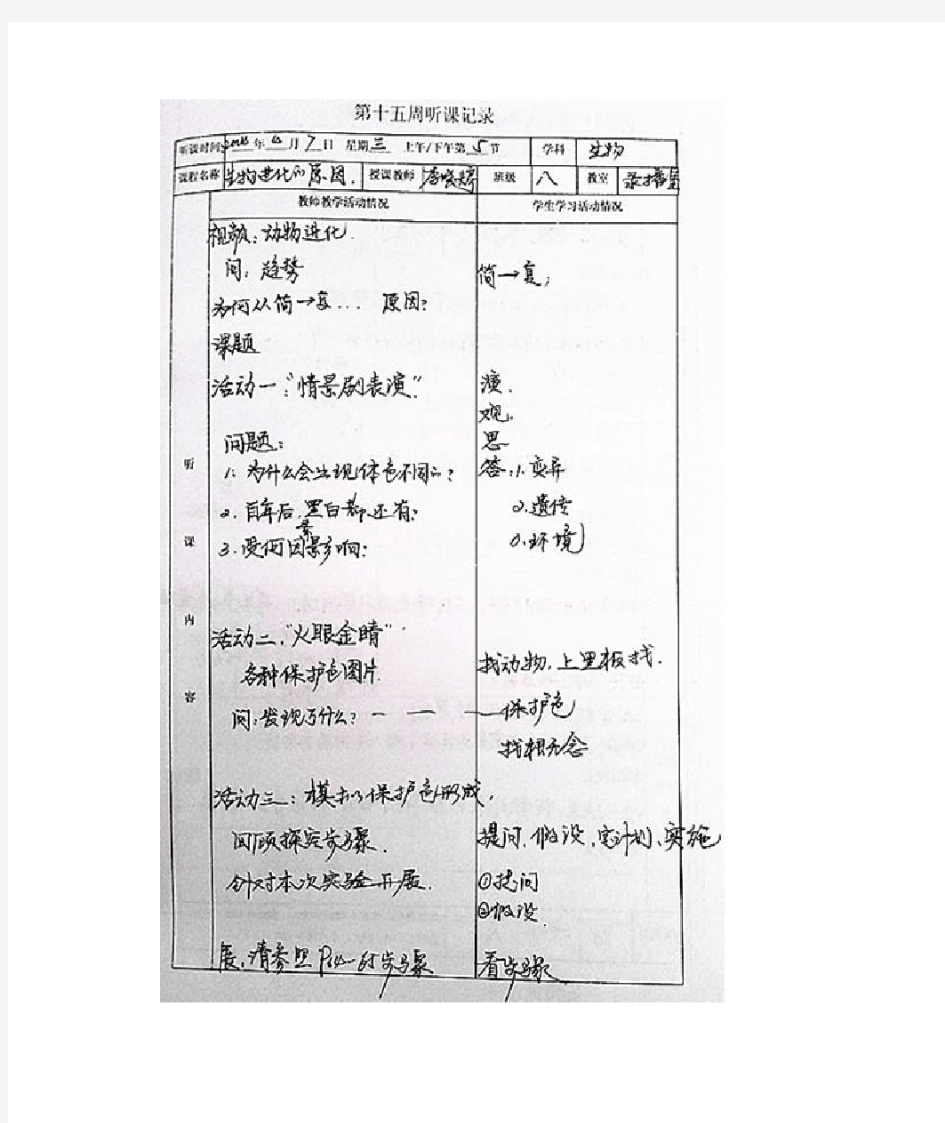 第十五周听课记录
听课时间 年 月 7 日 星期 三 上午/下午第 5 节 学科 生物
课程名称 生物进化的原因. 授课教师 班级 八 教室 录播室
教师教学活动情况 学生学习活动情况
视频:动物进化.
问:趋势 简→复;
为何从简→复... 原因?
课题
活动一:"情景剧表演". 演.
观.
问题: 思
1.为什么会出现体色不同的? 答:1.变异
2.百年后,黑白都还有? 2.遗传
3.受何因素影响? 环境
听课内容
活动二."火眼金睛".
各种保护色图片. 找动物.上黑板找.
问:发现了什么?— — — 保护色
找相概念
活动三:模拟保护色形成.
回顾探究步骤. 提问.假设.定计划、实施
针对本次实验开展. ①提问
②假设.
展,请参照 步骤 看步骤